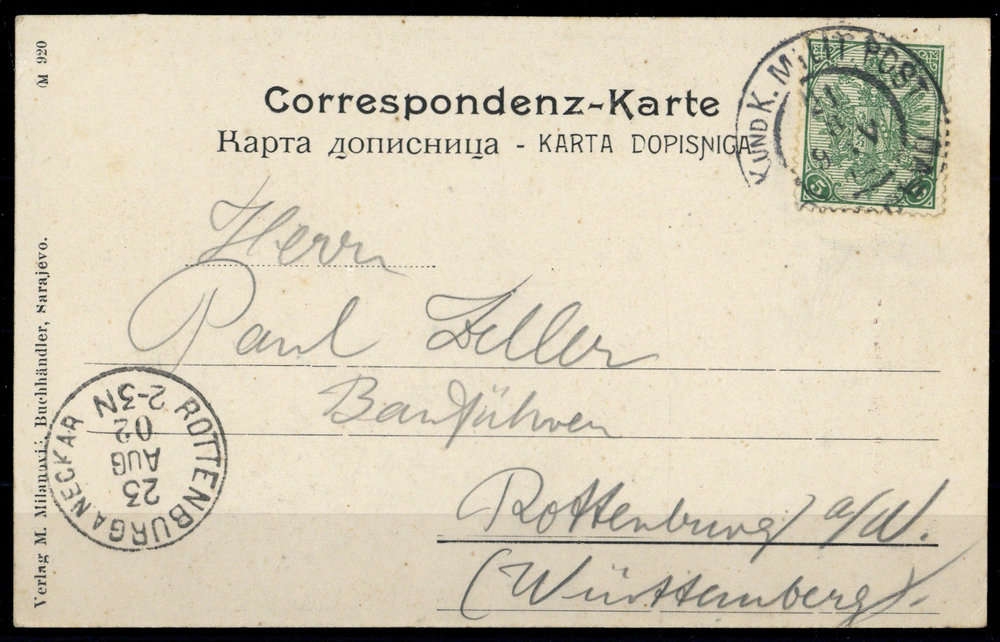 M 920
Correspondenz-Karte
Карта дописница - KARTA DOPISNICA
K. UND K. MILIT. POST
5 5
Herrn
Paul Zeller
Bauführer
Rottenburg a/N.
(Württemberg).
ROTTENBURG A NECKAR
23
AUG
02
2-3N
Verlag M. Milanović, Buchhändler, Sarajevo.